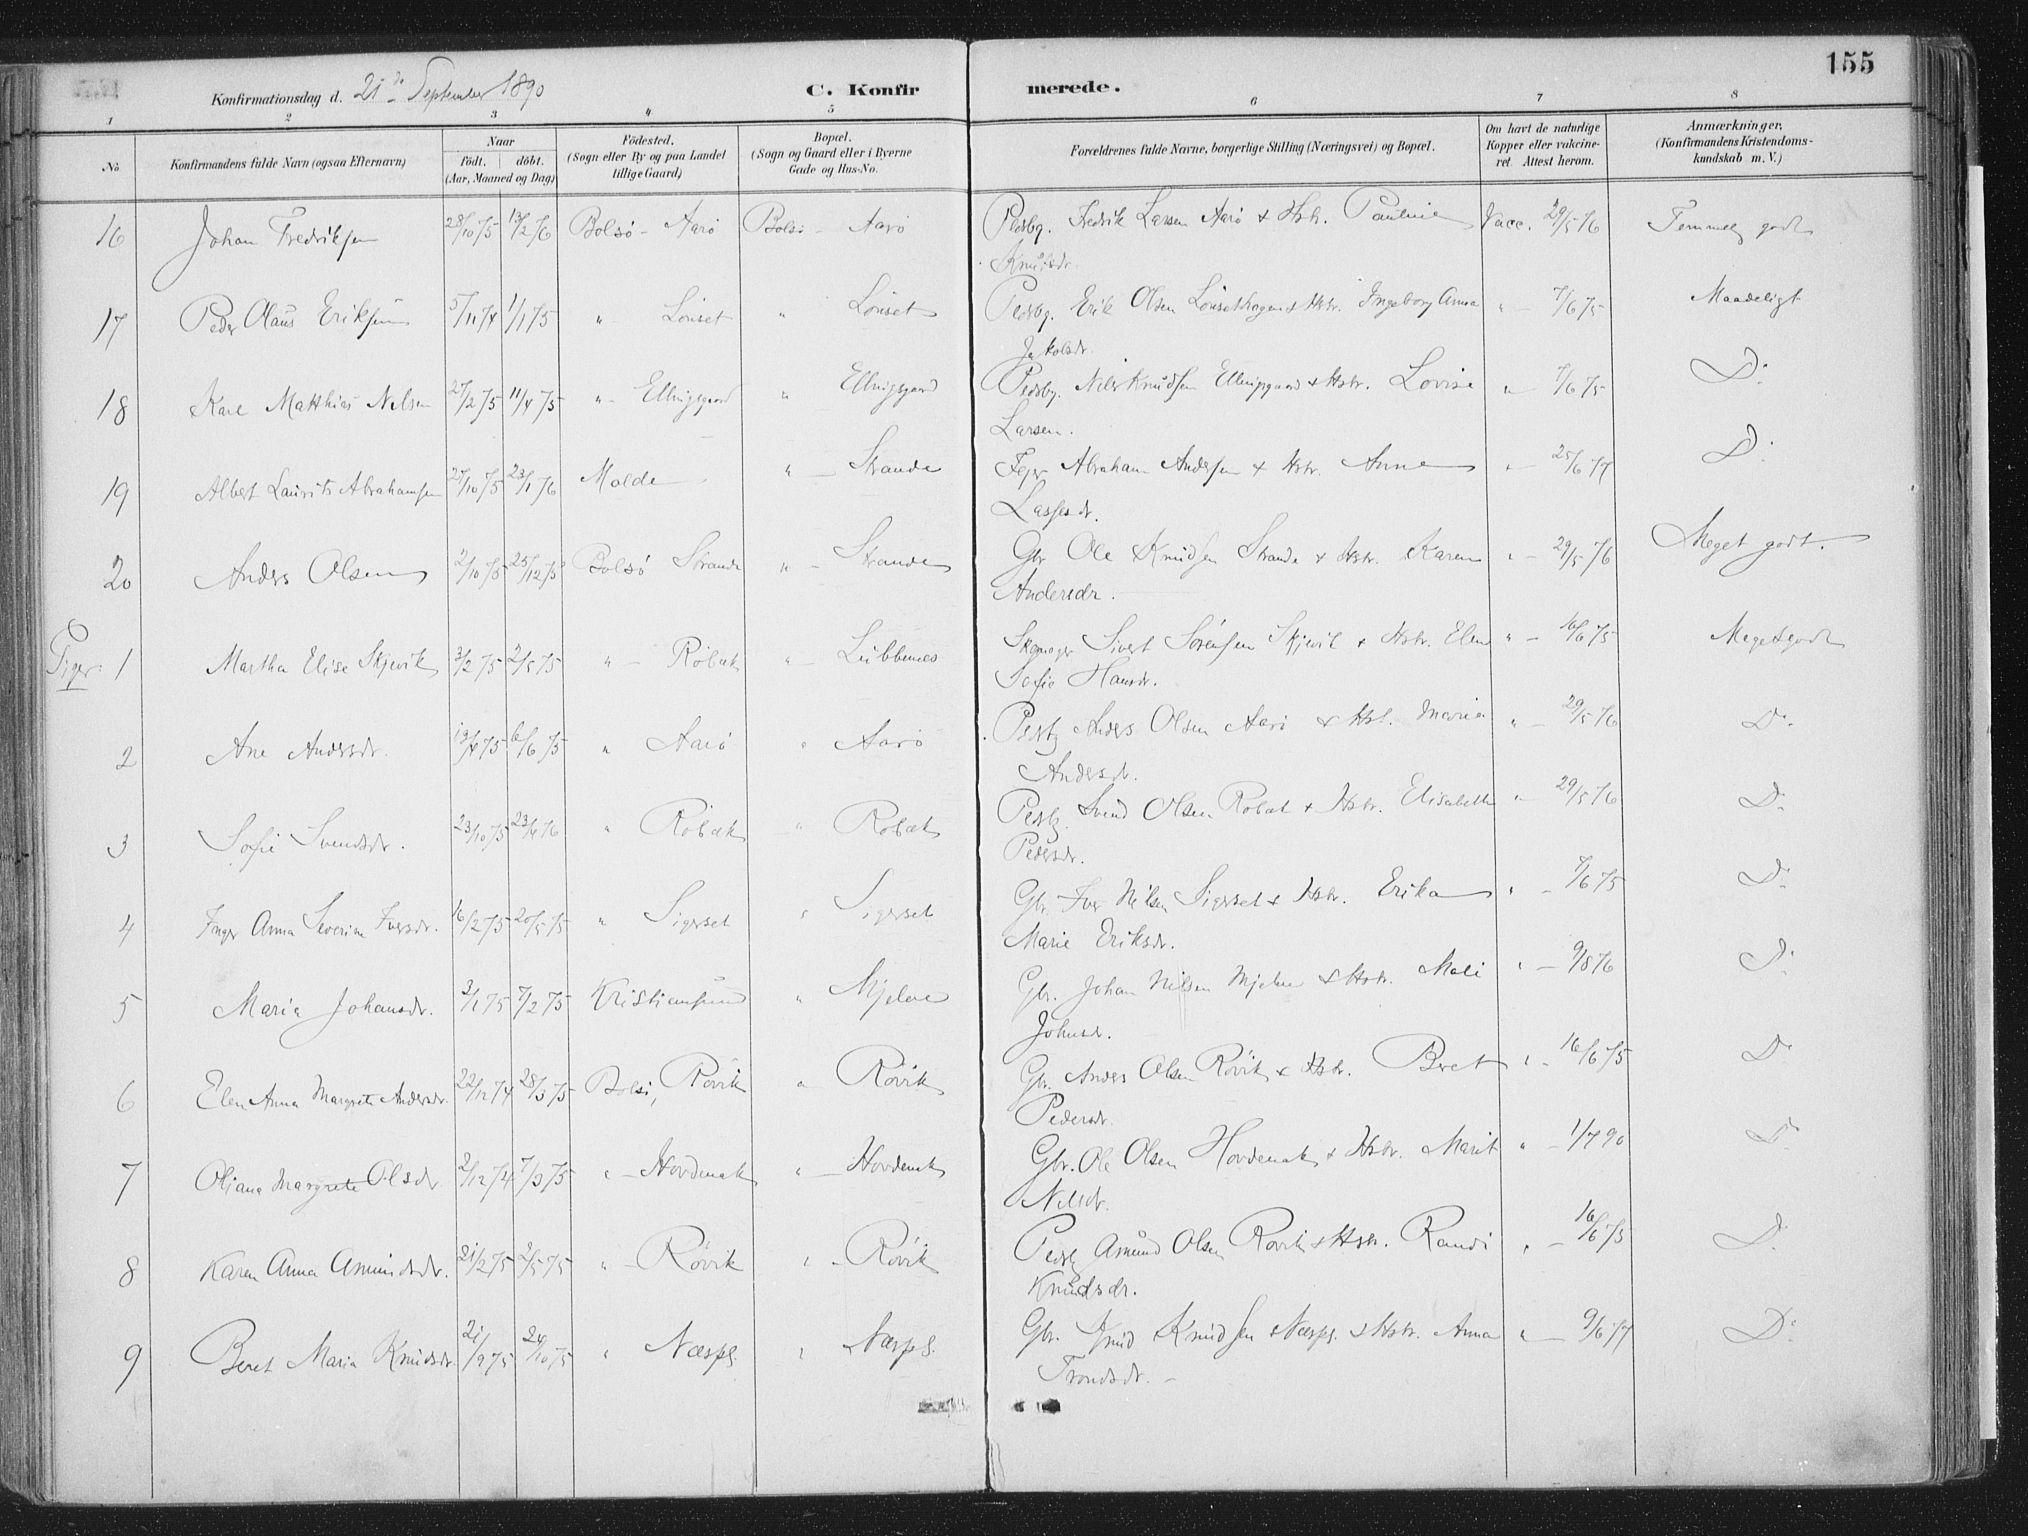 155
Konfirmationsdag d. 21de September 1890 C. Konfirmerede.
1 2 3 4 5 6 7 8
No. Konfirmandens fulde Navn (ogsaa Efternavn) Naar født. døbt. (Aar, Maaned og Dag) Födested. (Sogn eller By og paa Landet tillige Gaard) Bopæl. (Sogn og Gaard eller i Byerne Gade og Hus-No. Forældrenes fulde Navne, borgerlige Stilling (Næringsvei) og Bopæl. Om havt de naturlige Kopper eller vakcineret. Attest herom. Anmærkninger. (Konfirmandens Kristendomskundskab m. V.)
16 Johan Fredriksen 28/10 75 13/2 76 Bolsø - Aarø Bolsø - Aarø Pladsbg. Fedrik Larsen Aarø & Hstr. Pauline Vacc. 29/5 76 Temmelig godt
Knutsdr.
17 Peder Olaus Eriksen 5/11 74 1/1 75 " Lønset " Lønset Pladsbg. Erik Olsen Lønsethagen & Hstr. Ingeborg Anna " - 7/6 75 Maadeligt
Jakobsdr.
18 Karl Matthias Nilsen 27/2 75 11/4 75 " - Ellingsgaard " Ellingsgaard Pladsbg. Nils Knudsen Ellingsgaard & Hstr. Lovise " - 7/6 75 Do
Larsen.
19 Albert Laurits Abrahamsen 27/10 75 23/1 76 Molde " - Strande Abraham Andersen & Hstr. Anne " - 25/6 77 Do
Lassesdr.
20 Anders Olsen 2/10 75 25/12 75 Bolsø Strande " - Strande Gbr Ole Knudsen Strande & Hstr. Karen " - 29/5 76 Meget godt.
Andersdr.
Piger: 1 Martha Elise Skjevik 3/2 75 2/5 75 " - Røbæk " - Lubbenes Skomager Sivert Sørensen Skjevik & Hstr. Elen " - 16/6 75 Meget godt
Sofie Hansdr.
2 Ane Andersdr. 19/4 75 6/6 75 " Aarø " Aarø Pladsbg Anders Olsen Aarø & Hst. Maria " - 29/5 76 Do
Andersdr.
3 Sofie Svendsdr. 23/10 75 23/4 76 " Røbæk " Røbæk Pladsbg. Svend Olsen Røbæk & Hstr. Elisabeth " - 29/5 76 Do
Pedersdr.
4 Inger Anna Severine Iversdr. 16/2 75 20/5 75 " Sigerset " Sigerset Gbr. Iver Nilsen Sigerset & Hstr. Erika " - 7/6 75 Do
Marie Eriksdr.
5 Maria Johansdr. 3/1 75 7/2 75 Kristiansund " Mjelve Gbr. Johan Nilsen Mjelve & Hstr. Mali " - 9/8 76 Do
Johnsdr.
6 Elen Anna Margrete Andersdr. 22/12 74 28/3 75 Bolsø, Røvik " Røvik Gbr. Anders Olsen Røvik & Hstr. Beret " - 16/6 75 Do
Pedersdr.
7 Oliana Margrete Olsdr 2/12 74 7/3 75 " - Hovdenak " - Hovdenak Gbr. Ole Olsen Hovdenak & Hstr. Marit " - 1/7 90 Do
Nilsdr.
8 Karen Anna Amundsdr. 21/2 75 2/5 75 " - Røvik " - Røvik Pladsbg Amund Olsen Røvik & Hstr. Randi " - 16/6 75 Do
Knudsdr.
9 Beret Maria Knudsdr. 21/9 75 24/10 75 " Næspl. " Næspl. Gbr. Knud Knudsen Næspl. & Hstr. Anna " - 9/6 77 Do
Trondsdr. -